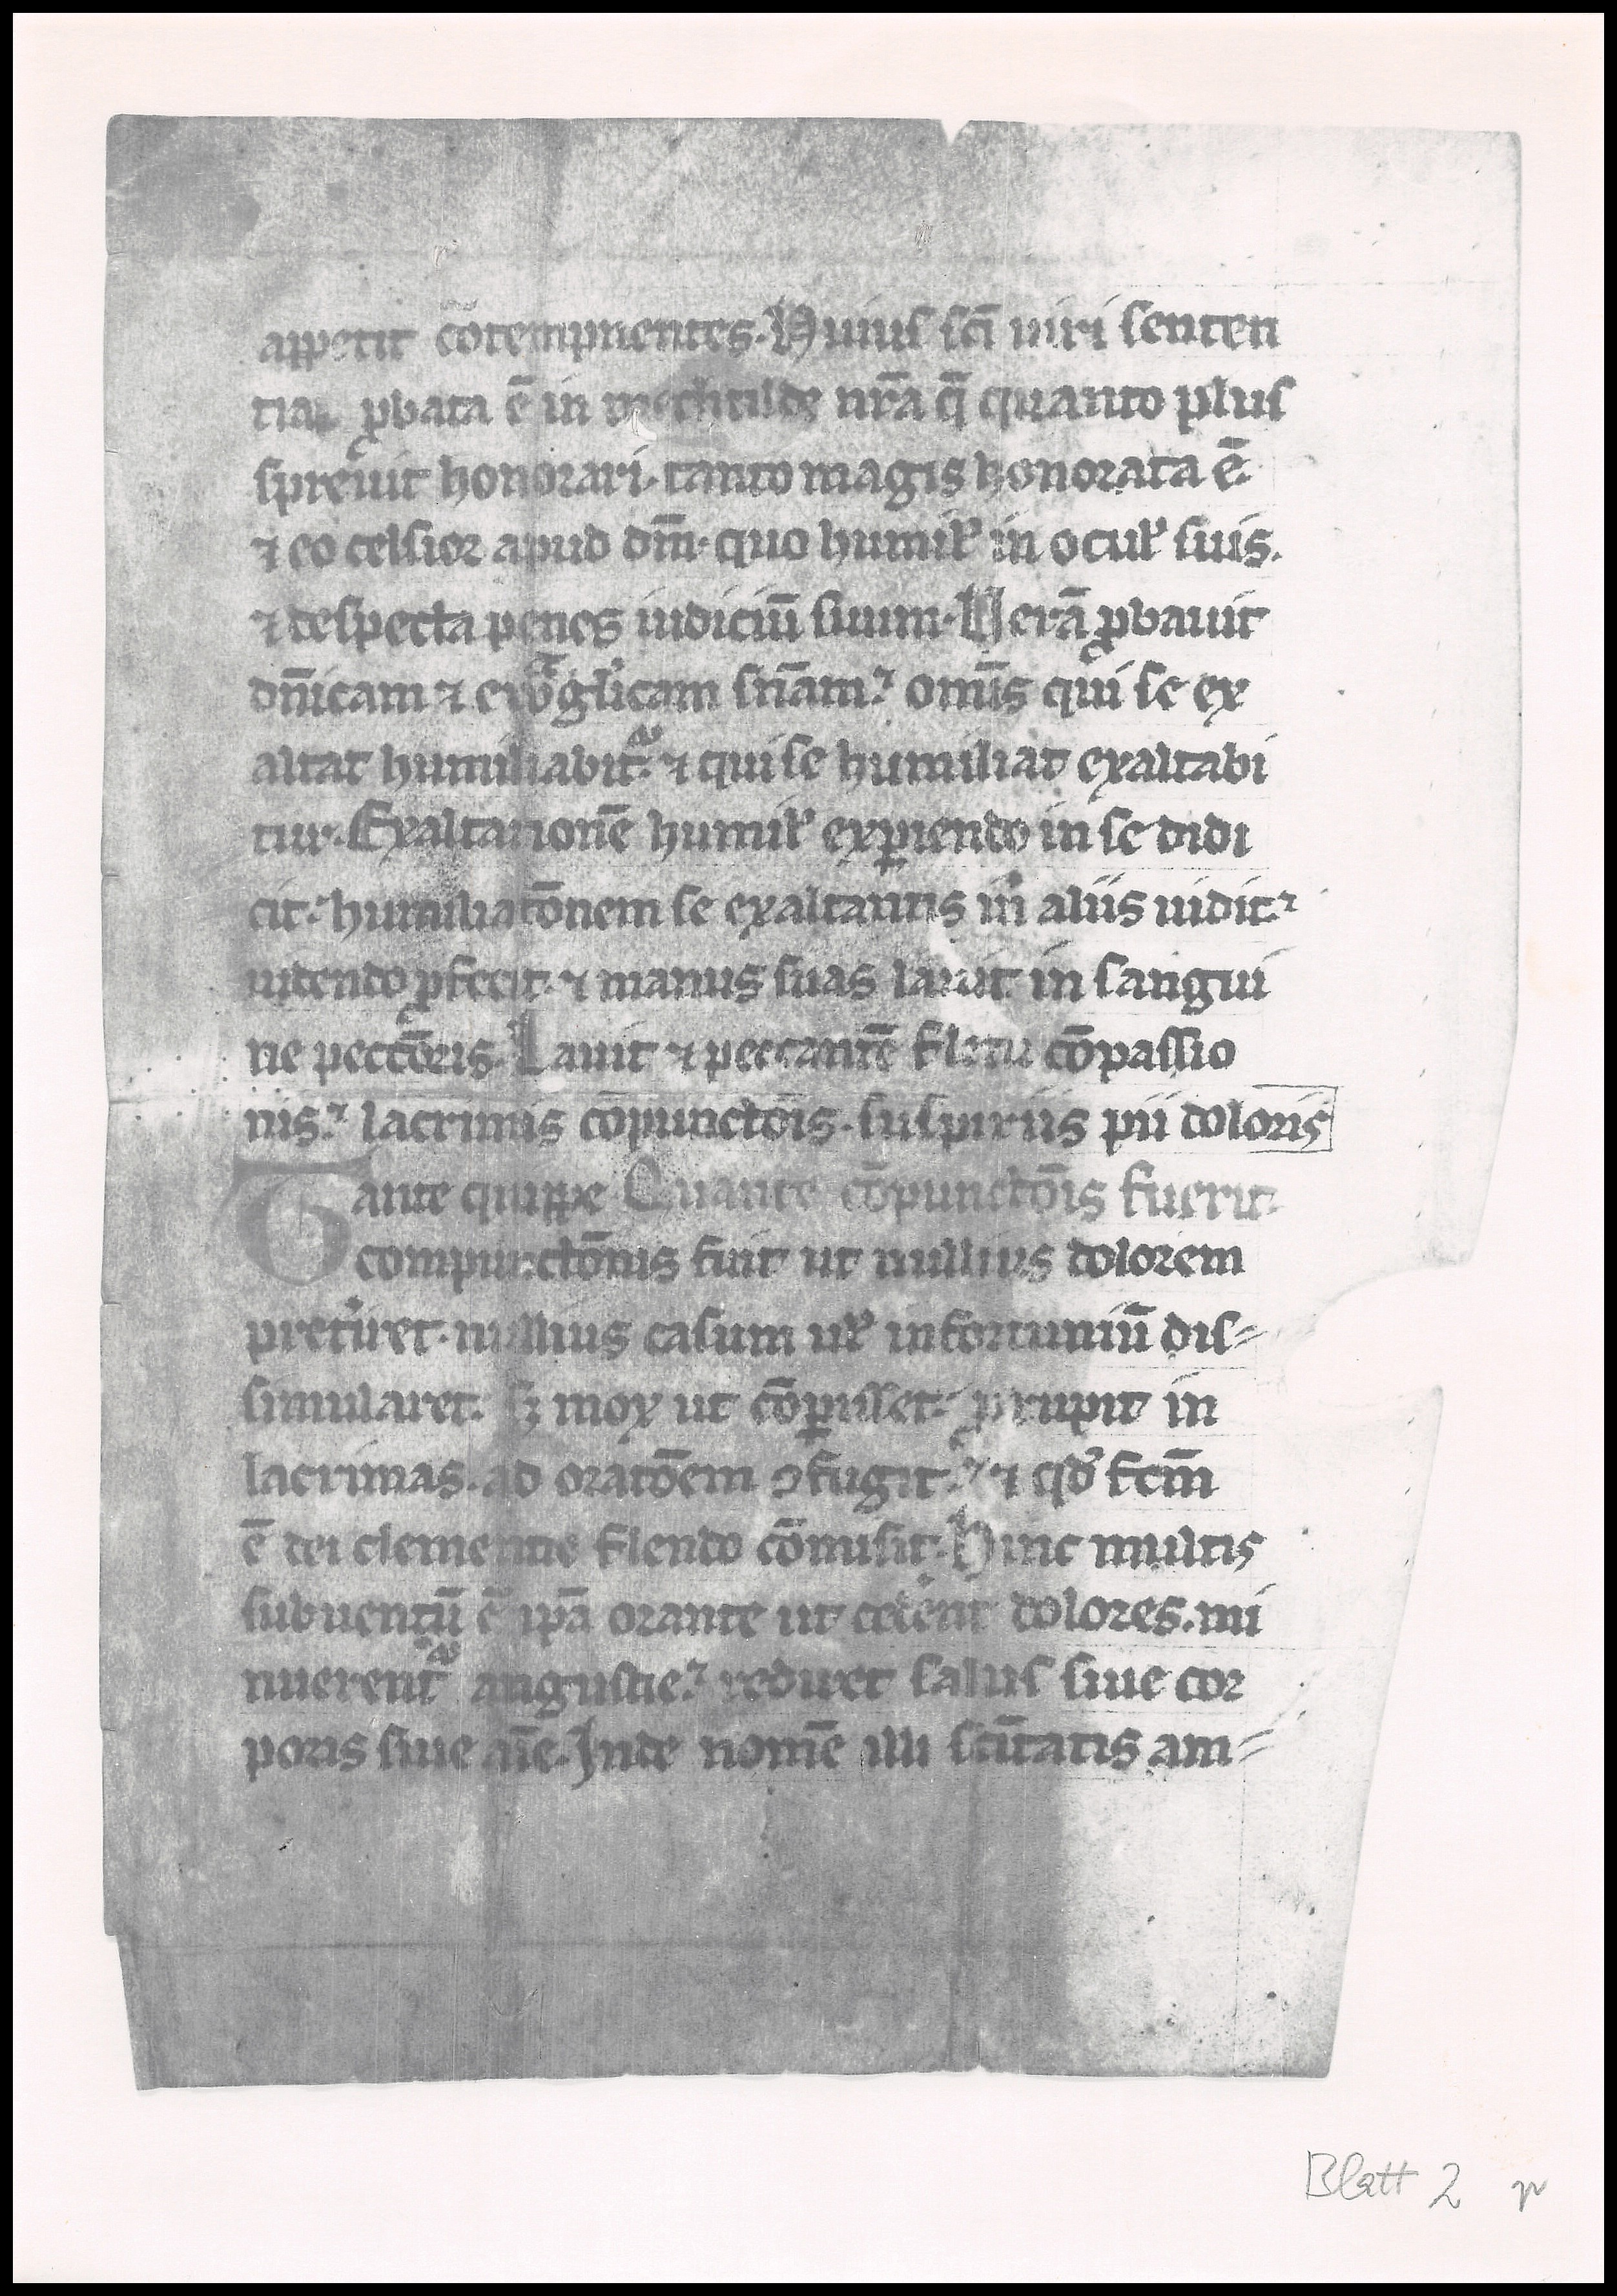 appetit cōtempnentes. Huius sc̄i uiri senten
tia ꝓbata ē in mechtilde nr̄a q̄ quanto plus
spreuit honorari. tanto magis honorata ē.
⁊ eo celsior apud dm̄. quo humil' in ocul' suis.
⁊ despecta penes iudiciū suum. Verā ꝓbauit
dn̄icam ⁊ ewāgl'icam sn̄am. omīs qui se ex
altat humiliabit᷑. ⁊ qui se humiliat exaltabi
tur. Exaltationē humil' exꝑiendo in se didi
cit. humiliatōnem se exaltantis in aliis uidit.
uidendo ꝓfecit. ⁊ manus suas lauit in sangui
ne peccōris. Lauit ⁊ peccantē fletu cōpassio
nis. lacrimis cōpunctōis. suspiriis pii doloris
Tante quippe Quante cōpunctōis fuerit.
compunctōnis fuit ut nullius dolorem
pret'iret. nullius casum ul' infortuniū dis⸗
simularet. sꝫ mox ut cōꝑisset. ꝓrupit in
lacrimas. ad oratōem ꝯfugit. ⁊ qd' fcm̄
ē dei clementie flendo cōmisit. Hinc multis
subuentū ē ip̄a orante ut cedēnt dolores. mi
nuerent᷑ angustie. rediret salus siue cor
poris siue aīe. Inde nomē illi sc̄itatis am⸗
Blatt 2 r